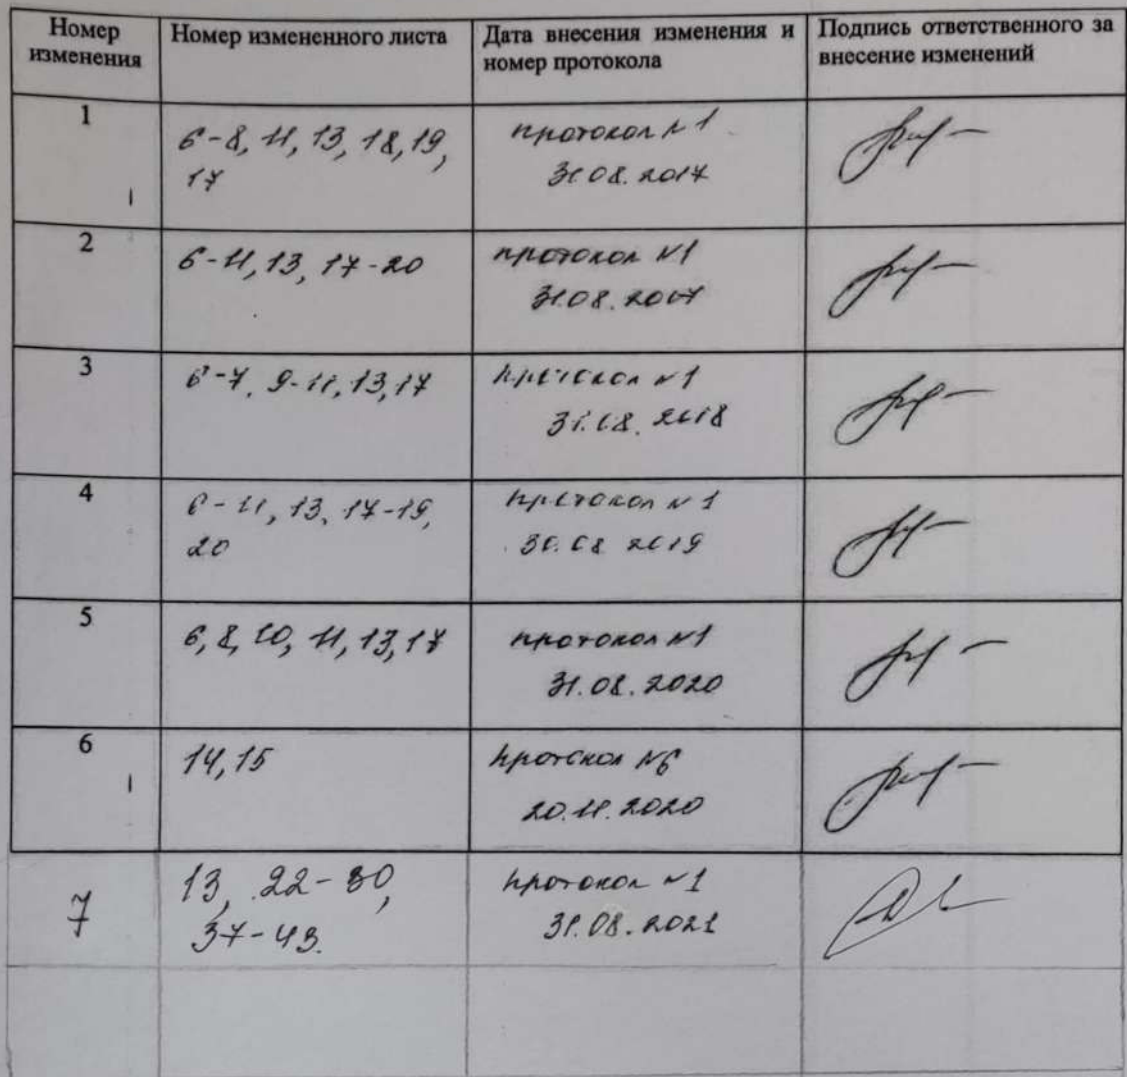 Номер изменения
Номер измененного листа
Дата внесения изменения и номер протокола
Подпись ответственного за внесение изменений
1
6-8, 11, 13, 18, 19,
17
протокол №1
31.08.2017
2
6-11, 13, 17-20
протокол №1
31.08.2017
3
6-7, 9-11, 13, 17
протокол №1
31.08.2018
4
6-11, 13, 17-19,
20
протокол №1
30.08.2019
5
6, 8, 10, 11, 13, 17
протокол №1
31.08.2020
6
14, 15
протокол №6
20.11.2020
7
13, 22-30,
37-43.
протокол №1
31.08.2021